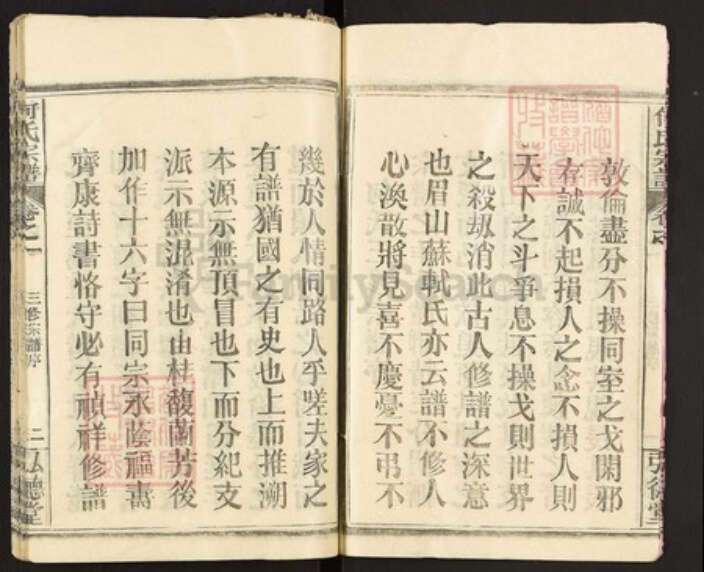 敦倫盡分不操同室之戈閑邪
存誠不起損人之念不損人則
天下之斗爭息不操戈則世界
之殺劫消此古人修譜之深意
也眉山蘇軾氏亦云譜不修人
心渙散將見喜不慶憂不弔不
幾於人情同路人乎嗟夫家之
有譜猶國之有史也上而推溯
本源示無頂冒也下而分紀支
派示無混淆也由桂馥蘭芳後
加作十六字曰同宗永蔭福壽
齊康詩書恪守必有禎祥修譜
何氏宗譜
卷之一
三修宗譜序
二
弘德堂
FamilySearch